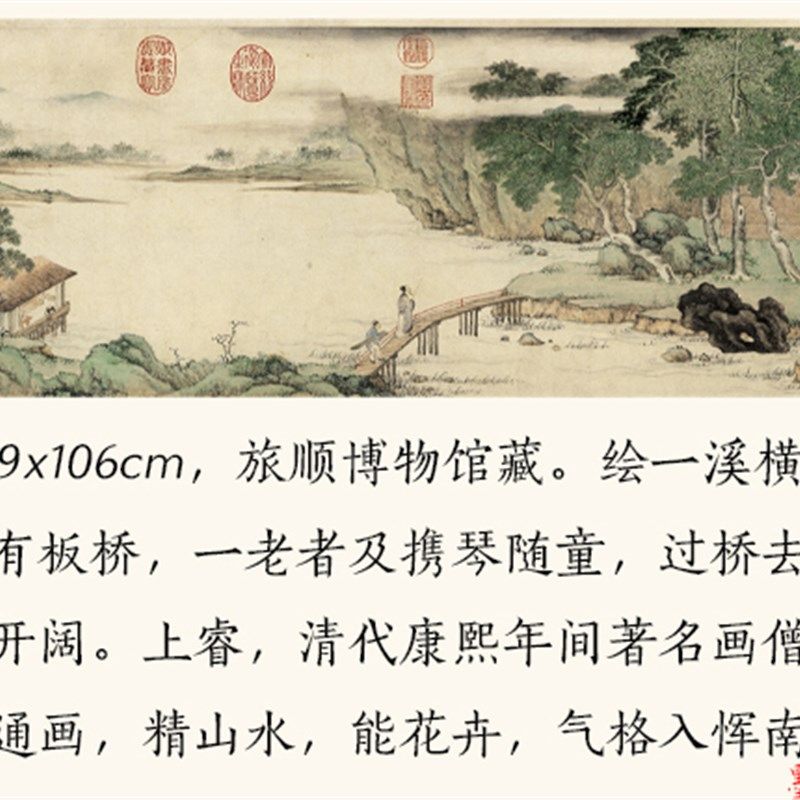 9x106cm，旅顺博物馆藏。绘一溪横
有板桥，一老者及携琴随童，过桥去
开阔。上睿，清代康熙年间著名画僧
通画，精山水，能花卉，气格入恽南